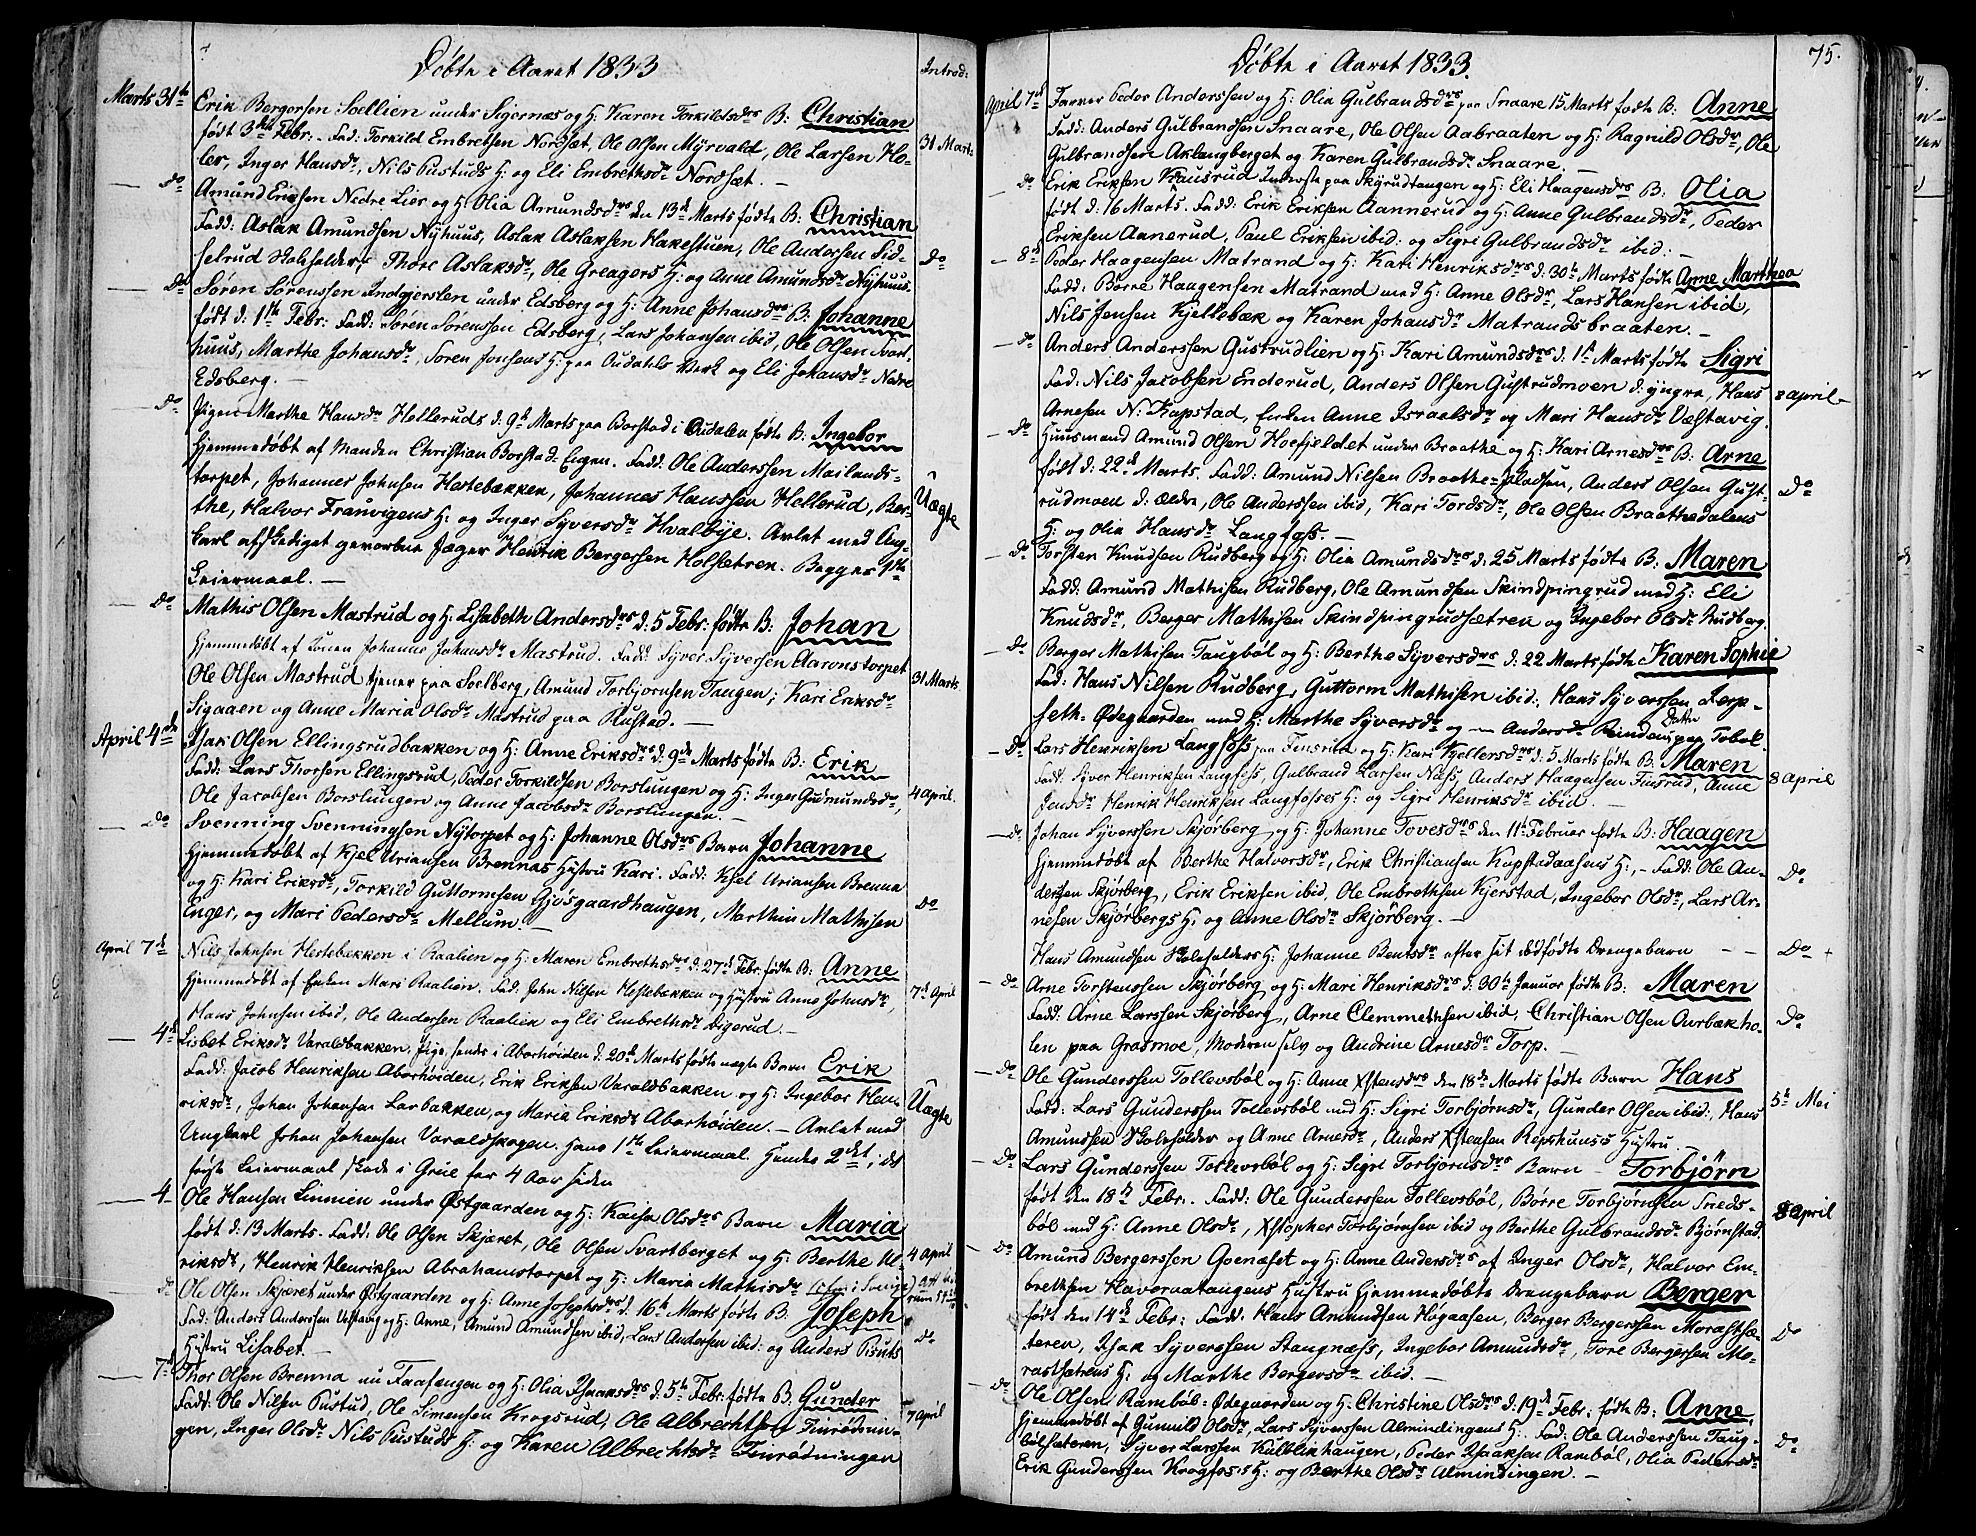 Døbte i Aaret 1833
Introd:
Marts 31te Erik Bergersen Soellien under Sigernæs og H: Karen Torkildsdrs B: Christian
født 3die Febr. Fad: Torkild Embretsen Nordsæt, Ole Olsen Myrvald, Ole Larsen Ho- 31 Marts
ler, Inger Hansdr, Nils Pustuds H: og Eli Embrethsdr Nordsæt. —
— Do Amund Ericsen Nedre Lier og H: Olia Amundsdrs den 13de Marts fødte B: Christian
Fadd: Aslak Amundsen Nyhuus, Aslak Aslaksen Hakestuen, Ole Andersen Sid-
selrud Skoleholder, Thore Aslaksdr, Ole Greagers H: og Anne Amundsdr Nyhuus. Do
— Do Søren Sørenssen Indgjerslen under Edsberg og H: Anne Johansdrs B: Johanne
født d: 1ste Febr: Fadd: Søren Sørenssen Edsberg, Lars Johansen ibid, Ole Olsen Svart-
huus, Marthe Johansdr, Søren Jonsens H: paa Oudahls Værk og Eli Johansdr Nedre
Edsberg. —
— Do Pigen Marthe Hansdr Helleruds d: 9de Marts paa Borstad i Oudalen fødte B: Ingebor
hjemmedøbt af Manden Christian Borstad-Eugen. Fadd: Ole Anderssen Mailands-
torpet, Johannes Johnsen Hestebækken, Johannes Hanssen Hellerud, Ber- Uægte
the, Halvor Franvigens H: og Inger Syversdr Hvalbye. Avlet med Ung-
karl afskediget gevorbne Jæger Henrik Bergersen Holsetren. Begges 1ste
Leiermaal. —
— Do Mathis Olsen Mastrud og H: Lisabeth Andersdrs d: 5 Febr: fødte B: Johan
hjemmedøbt af Konen Johanne Johansdr Mastrud. Fadd: Syver Syversen Aaronstorpet
Ole Olsen Mastrud tjener paa Soelberg, Amund Torbjørnsen Tangen; Kari Eriksdr 31 Marts
Sigaaen og Anne Maria Olsdr Mastrud paa Rustad. —
April 4de Isak Olsen Ellingsrudbakken og H: Anne Eriksdrs d: 9de Marts fødte B: Erik
Fadd: Lars Thorsen Ellingsrud, Peder Torkildsen Borslungen og H: Inger Gudmundsdr,
Ole Jacobsen Borslungen og Anne Jacobsdr Borslungen. — 4 April.
— Do Svenning Svenningsen Nytorpet og H: Johanne Olsdrs Barn Johanne
hjemmedøbt af Kjel Uriansen Brennas Hustru Kari. Fadd: Kjel Uriansen Brenna
og H: Kari Eriksdr, Torkild Guttormsen Gjøsgaardhaugen, Marthin Mathisen
Enger, og Mari Pedersdr Mellum. — Do
April 7de Nils Johnsen Hestebækken i Raalien og H: Maren Embrethsdrs d: 27de Febr. fødte B: Anne
hjemmedøbt af Enken Mari Raalien. Fad: John Nilsen Hestebækken og Hustru Anne Johnsdr, 7de April
Hans Johnsen ibid, Ole Andersen Raalien og Eli Embrethsdr Digerud. —
— 4de Lisbet Eriksdr Varaldbakken, Pige, hendes i Aborhøiden d: 20de Marts fødte uægte Barn Erik
Fadd: Jacob Henriksen Aborhøiden, Erik Eriksen Varaldbakken og H: Ingebor Hen-
riksdr, Johan Johansen Larbakken, og Maria Eriksdr Aborhøiden. — Avlet med Uægte
Ungkarl Johan Johansen Varaldskogen. Hans 1ste Leiermaal. Hendes 2det, det
første Leiermaal skede i Grue for 4 Aar siden
— 4 Ole Hansen Linnien under Østgaarden og H: Kaisa Olsdrs Barn Maria
født d: 13 Marts. Fadd: Ole Olsen Skjæret, Ole Olsen Svartberget og H: Berthe Ul-
riksdr, Henrik Henriksen Abrahamstorpet og H: Maria Mathisdr 4 April
do Ole Olsen Skjæret under Østgaarden og H: Anne Josephsdrs d: 16de Marts fødte B: Joseph
Fad: Anders Anderssen Vestvang og H: Anne, Amund Amundsen ibid, Lars Andersen ibid: og Anders Pouls
Hustru Lisabet. — Do
— 7de Thor Olsen Brenna nu Faafængen og H: Olia Isaaksdrs d: 5te Febr: fødte B: Gunder
Fadd: Ole Nilsen Pustud, Ole Simensen Krogsrud, Ole Albrechtsen Finrødnin- 7 April
gen, Inger Olsdr Nils Pustuds H: og Karen Albrechtsdr Finrødningen
Døbte i Aaret 1833.
75.
April 7de Farver Peder Anderssen og H: Olia Gulbrandsdrs paa Snaare 15 Marts fødte B: Anne
Fadd: Anders Gulbrandsen Snaare, Ole Olsen Aabraaten og H: Ragnild Olsdr, Ole
Gulbrandsen Aklangberget og Karen Gulbrandsdr Snaare.
— Do Erik Eriksen Krausrud Inderste paa Skyrudtangen og H: Eli Haagensdrs B: Olia
født d: 16 Marts. Fadd: Erik Eriksen Aannerud og H: Anne Gulbrandsdr, Peder
Eriksen Aanerud, Paul Eriksen ibid: og Sigri Gulbrandsdr ibid: —
— 8de Peder Haagensen Matrand og H: Kari Henriksdrs d: 30te Marts fødte Anne Marthea
Fadd: Børre Haagensen Matrand med H: Anne Olsdr, Lars Hansen ibid,
Nils Jensen Kjellebæk og Karen Johansdr Matrandsbraaten. —
— Do Anders Anderssen Gustrudlien og H: Kari Amundsdrs d: 1ste Marts fødte Sigri
Fad: Nils Jacobsen Enderud, Anders Olsen Gustrudmoen d: yngre, Hans 8 April —
Arnesen N: Kapstad, Enken Anne Israelsdr og Mari Hansdr Væstavig.
— Do Huusmand Amund Olsen Hoefjeldet under Braathe og H: Kari Arnesdrs B: Arne
født d: 22de Marts. Fadd: Amund Nilsen Braathe-Jaladsen, Anders Olsen Gust- Do
rudmoen d: ældre, Ole Anderssen ibid, Kari Tordsdr, Ole Olsen Braathedalens
H: og Olia Hansdr Langfoss. —
— Do Torsten Knudsen Rudberg og H: Olia Amundsdrs d: 25 Marts fødte B: Maren
Fadd: Amund Mathisen Rudberg, Ole Amundsen Skindpingrud med H: Eli
Knudsdr, Berger Mathisen Skindpingrudsætren og Ingebor Olsdr Rudberg.
— Do Berger Mathisen Taugbøl og H: Berthe Syversdrs d: 22 Marts fødte Karen Sophie
Fad: Hans Nilsen Rudberg, Guttorm Mathisen ibid: Hans Syverssen Lerp-
seth-Ødegaarden med H: Marthe Syversdr og — Andersdr Reinden paa Tobøl.
— Do Lars Henriksen Langfoss paa Finsrud og H: Kari Kjellersdrs d: 5 Marts fødte B: Maren
Fadd: Syver Henriksen Langfoss, Gulbrand Larsen Næss, Anders Haagensen Finsrud, Anne 8 April
Jensdr Henrik Henriksen Langfosses H: og Sigri Henriksdr ibid. —
— Do Johan Syverssen Skjørberg og H: Johanne Tovesdrs den 11te Februar fødte B: Haagen
hjemmedøbt af Berthe Halvorsdr, Erik Christiansen Kapstadaasens H:, — Fadd: Ole An-
dersen Skjørberg, Erik Eriksen ibid, Ole Embrethsen Kjerstad, Ingebor Olsdr, Lars Ar- Do
nesen Skjørbergs H: og Anne Olsdr Skjørberg. —
Hans Amundsen Skoleholders H: Johanne Bentsdr efter sit dødfødte Drengebarn — — Do +
— Do Arne Torstenssen Skjørberg og H: Mari Henriksdrs d: 30te Januar fødte B: Maren
Fadd: Arne Larssen Skjørberg, Arne Clemmetsen ibid, Christian Olsen Ourbækho- Do
len paa Grasmoe, Moderen selv og Andrine Arnesdr Torp. —
— Do Ole Gunderssen Tollevsbøl og H: Anne Xstensdrs den 18de Marts fødte Barn Hans
Fadd: Lars Gunderssen Tollevsbøl med H: Sigri Torbjørnsdr, Gunder Olsen ibid:, Hans 5te Mai
Amundsen Skoleholder og Anne Arnesdr, Anders Xstensen Repshuuss Hustru. —
— Do Lars Gunderssen Tollevsbøl og H: Sigri Torbjørnsdrs Barn — Torbjørn
født den 18de Febr. Fadd: Ole Gunderssen Tollevsbøl, Børre Torbjørnsen Sneds-
bøl med H: Anne Olsdr, Xstopher Torbjørnsen ibid og Berthe Gulbrandsdr Bjørnstad. 8 April
— Do Amund Bergerssen Goenæset og H: Anne Andersdrs af Inger Olsdr, Halvor Em-
brethsen Havoraatangens Hustru hjemmedøbte Drengebarn Berger
født den 14de Febr: Fadd: Hans Amundsen Høgaasen, Berger Bergerssen Morastsæ- Do
teren, Isak Syverssen Stangnæss, Ingebor Amundsdr, Tore Bergersen Mo-
rastsæterens H: og Marthe Bergersdr ibid. —
— Do Ole Olsen Rambøl-Ødegaarden og H: Christine Olsdrs d: 19de Febr: fødte B: Anne,
hjemmedøbt af Gunnild Olsdr, Lars Syverssen Almindingens H: Fad: Ole Anderssen Taug-
bølsæteren, Syver Larssen Kulblikhaugen, Peder Isaaksen Rambøl, Olia Pedersdr Do
Erik Gunderssen Krogfoss H: og Berthe Olsdr Almindingen. —